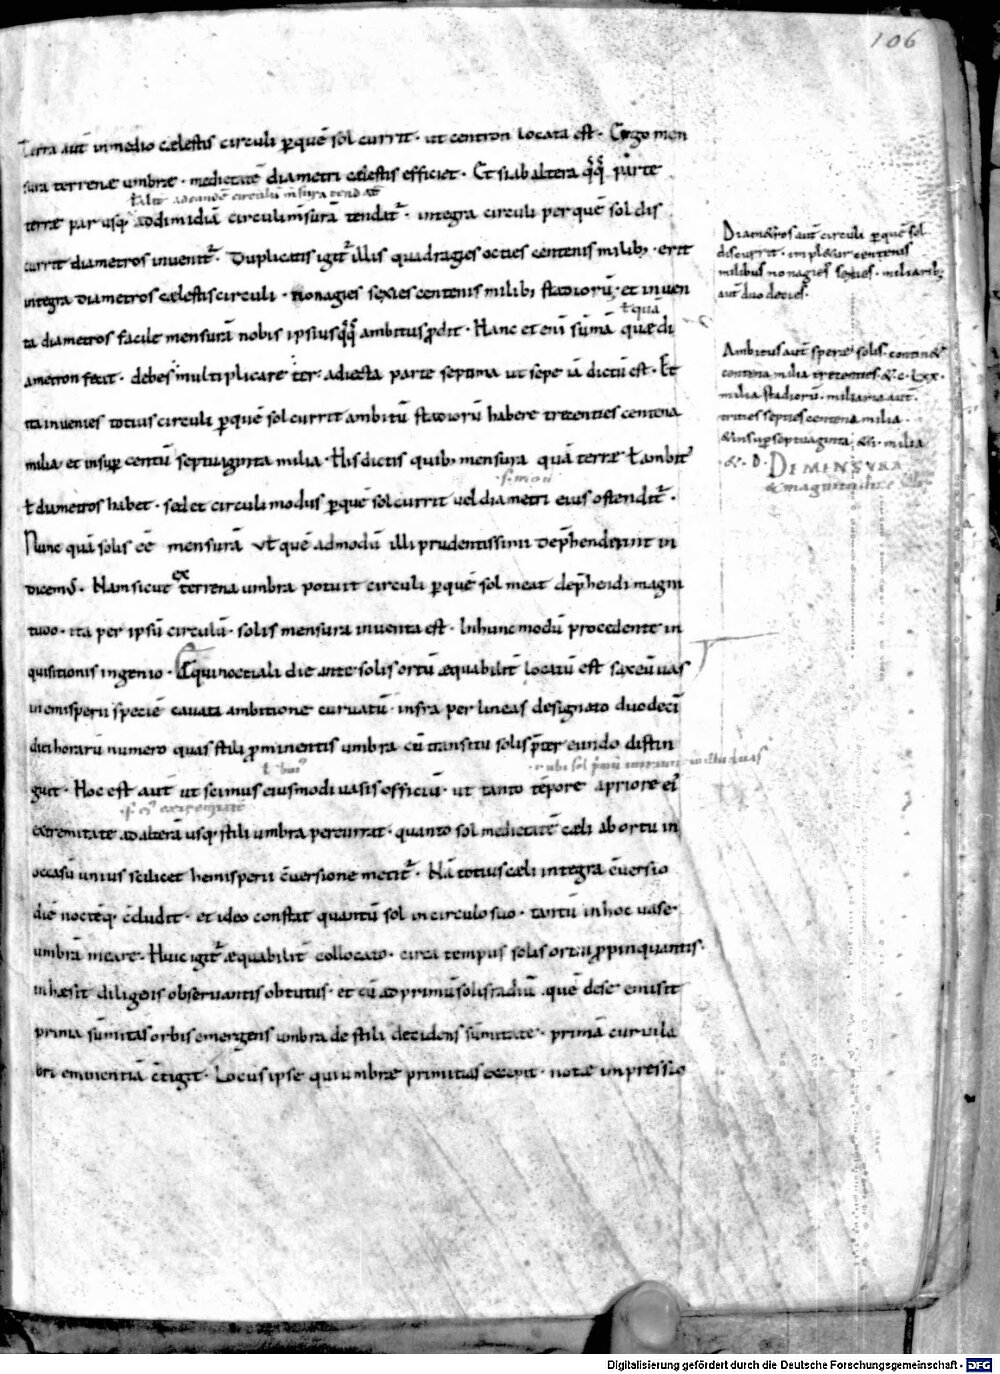 106
Terra aut̄ in medio cælestis circuli p̱ quē sol currit · ut centron locata est · Ergo men
sura terrenæ umbræ · medietatē diametri cælestis efficiet · Et si ab altera q̄q̄ parte
terræ par usq; ad dimidiā circuli m̄surā tendat̄ · integra circuli per quē sol dis
currit diametros invenit̄ · Duplicatis igit̄ illis quadragies octies centenis milib; · erit
integra diametros cælestis circuli · nonagies sexies centenis milib; stadiorū · et inven
ł quā
ta diametros facile mensurā nobis ipsius q̄q̄ ambitus p̱dit · Hanc et eni sūmā quæ di
ametron fecit · debes multiplicare ter · adiecta parte septima ut sepe iā dictū est · Et
ita invenies totius circuli p̱ quē sol currit ambitū stadiorū habere trecenties centena
milia · et insup̱ centū septuaginta milia · His dictis quib; mensura quā terræ ł ambit̄
ł diametros habet · sed et circuli modus p̱ quē sol currit vel diametri eius ostendit̄ ·
Nunc quā solis eē mensurā vł quē admodū illi prudentissimi dep̱henderint in
dicem; · Nam sicut ex terrena umbra potuit circuli p̱ quē sol meat dep̱hendi magni
tudo · ita per ipsū circulū · solis mensura inventa est · In hunc modū procedente in
quisitionis ingenio · Æquinoctiali die ante solis ortū æquabilit̄ locatū est saxeū vas
in emisperii speciē cavata ambitione curvatū · infra per lineas designato duodeci
diei horarū numero quas stili p̱minentis umbra cū transitu solis p̄ter eundo distin
guit · Hoc est aut̄ ut scimus eiusmodi vasis officiū · ut tanto tēpore a priore ei
extremitate ad alterā usq; stili umbra percurrat · quanto sol medietatē cæli ab ortu in
occasū unius scilicet hemisperii c̄versione metit̄ · Nā totius cæli integra c̄versio
diē noctēq; c̄cludit · et ideo constat quantū sol in circulo suo · tantū in hoc vase
umbrā meare · Huic igit̄ æquabilit̄ collocato · circa tempus solis ortu p̱pinquantis ·
inhæsit diligens observantis obtutus · et cū ad primū solis radiū quē de se emisit
prima sūmitas orbis emergens umbra de stili decidens sūmitate · primā curvi la
bri eminentiā c̄tigit · Locus ipse qui umbræ primitias excepit · notæ impressio
Diametros aut̄ circuli p̱ quē sol
discurrit · impletur centenis
milibus nonagies sexies · miliarib;
aut̄ duodecies ·
Ambitus aut̄ speræ solis · continet
centena milia trecenties · et c · lxx ·
milia stadiorū · miliaria aut̄ ·
tricies septies centena milia ·
et insup̱ septuaginta et · i · milia
· et · D · DE MENSVRA
et magnitudine
Digitalisierung gefördert durch die Deutsche Forschungsgemeinschaft - DFG